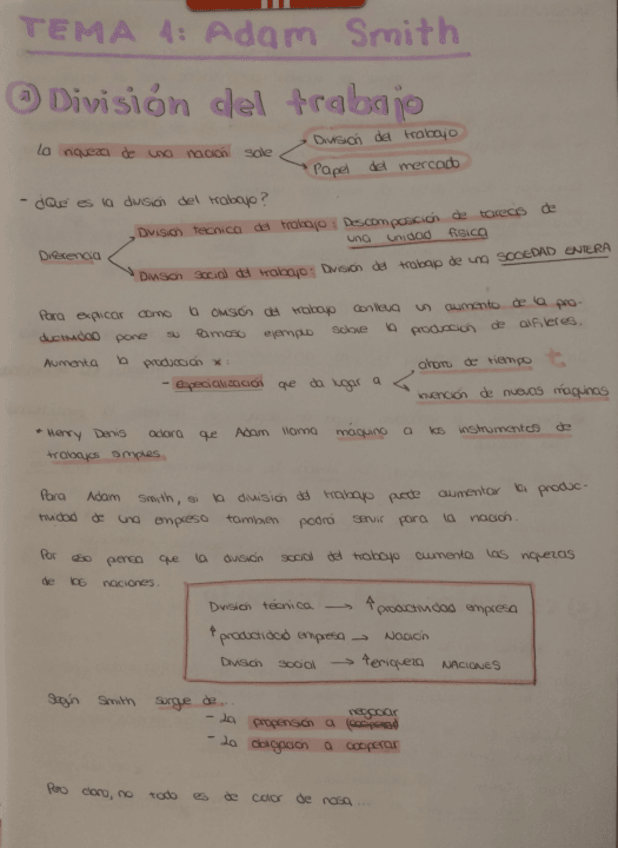 TEMA 1: Adam Smith
a) División del trabajo
La riqueza de una nación sale
División del trabajo
Papel del mercado
- ¿Qué es la división del trabajo?
Diferencia
División técnica del trabajo: Descomposición de tareas de
una unidad física
División social del trabajo: División del trabajo de una SOCIEDAD ENTERA
Para explicar como la división del trabajo conlleva un aumento de la pro-
ductividad pone su famoso ejemplo sobre la produccion de alfileres.
Aumenta la producción x:
- especialización que da lugar a
ahorro de tiempo t
invención de nuevas máquinas
* Henry Denis aclara que Adam llama máquina a los instrumentos de
trabajos simples.
Para Adam Smith, si la división del trabajo puede aumentar la produc-
tividad de una empresa también podrá servir para la nación.
Por eso piensa que la división social del trabajo aumenta las riquezas
de las naciones.
División técnica → ↑ productividad empresa
↑ productividad empresa → Nación
División social → ↑ eriqueza NACIONES
Según Smith surge de...
- La propensión a negociar
- La obligación a cooperar
Pero claro, no todo es de color de rosa...